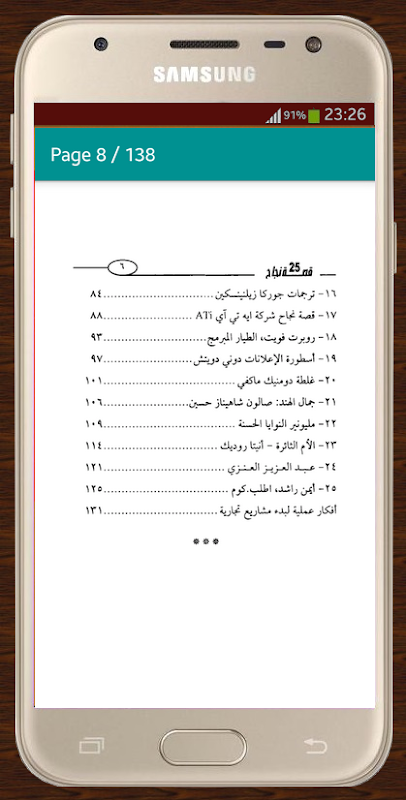 SAMSUNG
91% 23:26
Page 8 / 138
٦ 25 قصة نجاح
١٦- ترجمات جوركا زيلنينسكين..............................٨٤
١٧- قصة نجاح شركة ايه تي آي ATi.........................٨٨
١٨- روبرت فويت، الطيار المبرمج..............................٩٣
١٩- أسطورة الإعلانات دوني دويتش...........................٩٧
٢٠- غلطة دومنيك ماكفي ....................................١٠١
٢١- جمال الهند: صالون شاهيناز حسين......................١٠٦
٢٢- مليونير النوايا الحسنة ...................................١٠٩
٢٣- الأم الثائرة - أنيتا روديك ................................١١٤
٢٤- عبد العزيز العنزي......................................١٢١
٢٥- أيمن راشد، اطلب.كوم ..................................١٢٥
أفكار عملية لبدء مشاريع تجارية ..............................١٣١